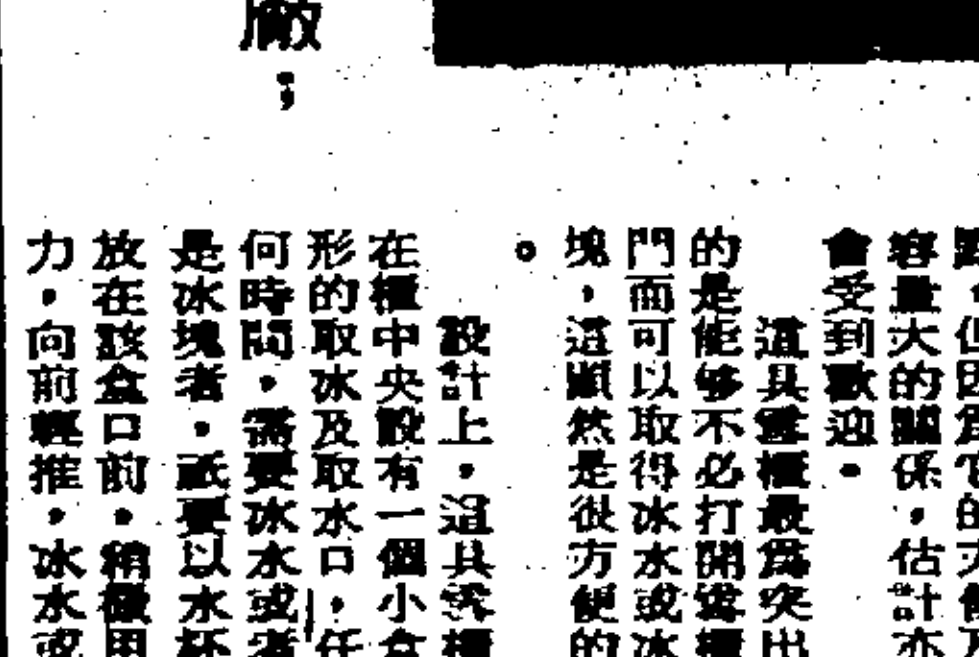 廠；
但因爲它的大
容量大的關係，估計亦
會受到歡迎。
這具雪櫃最爲突出
的是能够不必打開雪櫃
門而可以取得冰水或冰
塊，這顯然是很方便的
。
設計上，這具雪櫃
在櫃中央設有一個小盒
形的取冰及取水口，任
何時間，需要冰水或者
是冰塊者，祇要以水杯
放在該盒口前，稍微用
力，向前輕推，冰水或